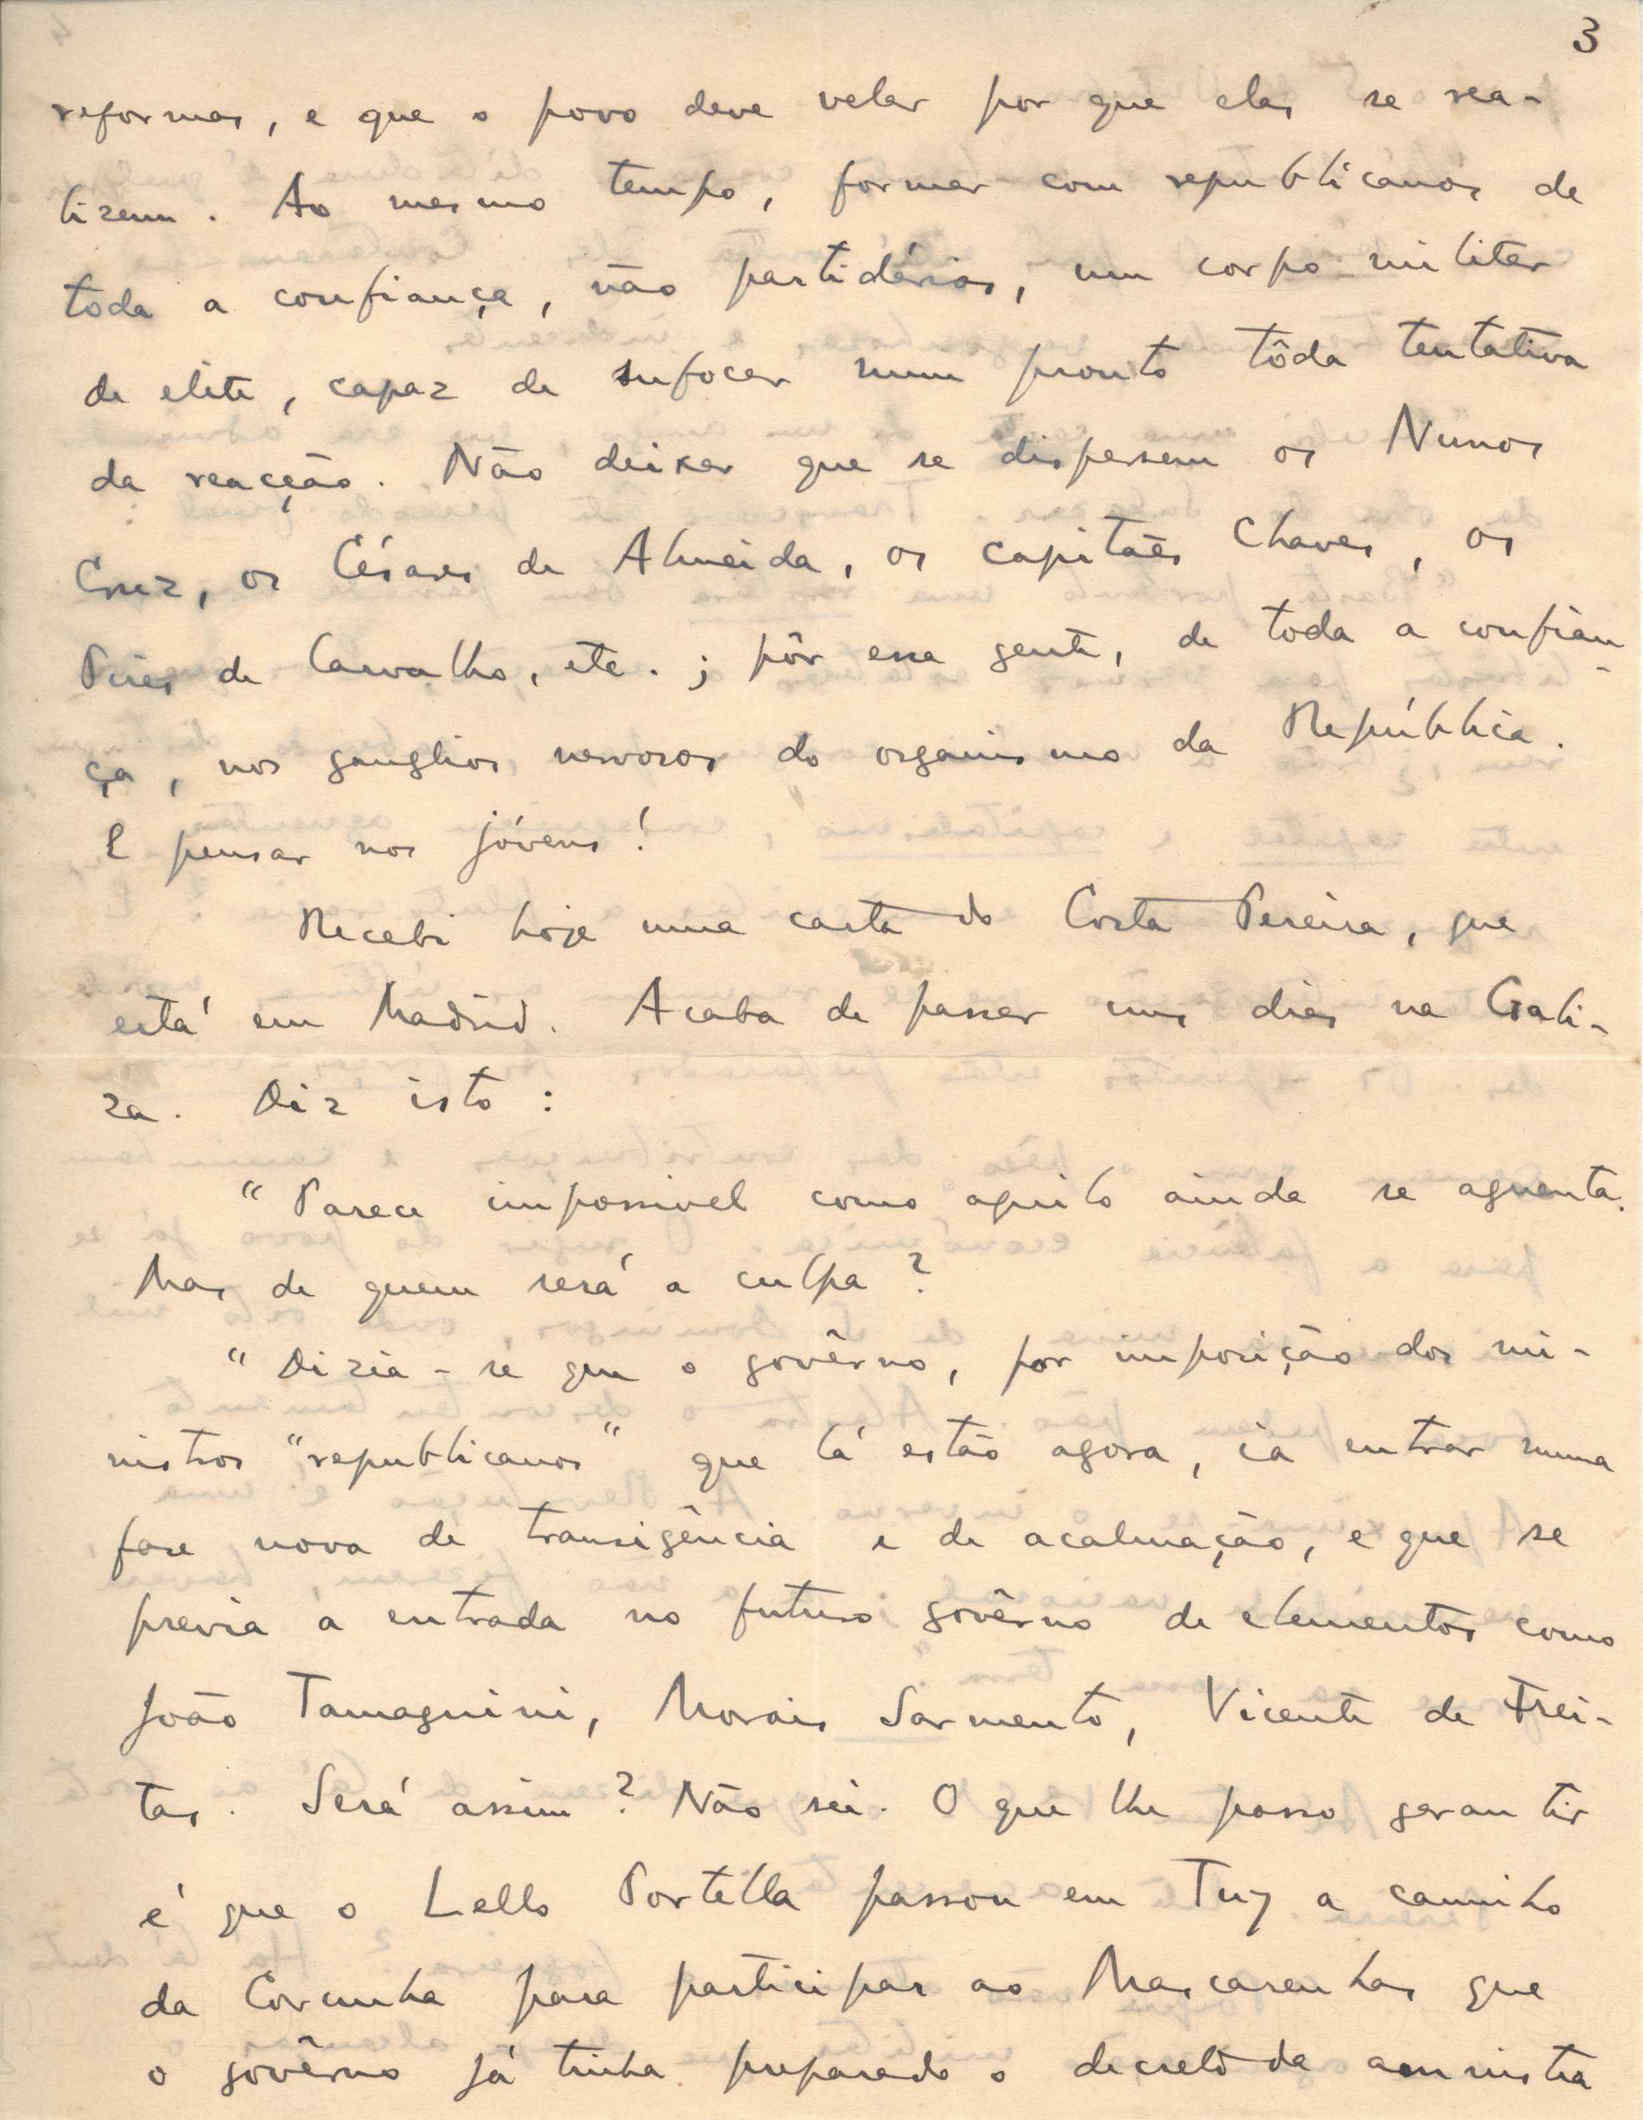 3
reformas, e que o povo deve velar por que elas se rea-
lizem. Ao mesmo tempo, formar com republicanos de
toda a confiança, não partidários, um corpo militar
de elite, capaz de sufocar num pronto tôda tentativa
da reacção. Não deixar que se dispersem os Nunos
Cruz, os Césares de Almeida, os capitães Chaves, os
Pires de Carvalho, etc.; pôr essa gente, de toda a confian-
ça, nos ganglios nervosos do organismo da República.
E pensar nos jóvens!
Recebi hoje uma carta do Costa Pereira, que
está em Madrid. Acaba de passar uns dias na Gali-
za. Diz isto:
"Parece impossivel como aquilo ainda se aguenta.
Mas de quem será a culpa?
"Dizia-se que o govêrno, por imposição dos mi-
nistros "republicanos" que lá estão agora, ia entrar numa
fase nova de transigência e de acalmação, e que se
previa a entrada no futuro govêrno de elementos como
João Tamagnini, Morais Sarmento, Vicente de Frei-
tas. Será assim? Não sei. O que lhe posso garantir
é que o Lello Portella passou em Tuy a caminho
da Corunha para participar ao Mascarenhas que
o govêrno já tinha preparado o decreto da amnistia